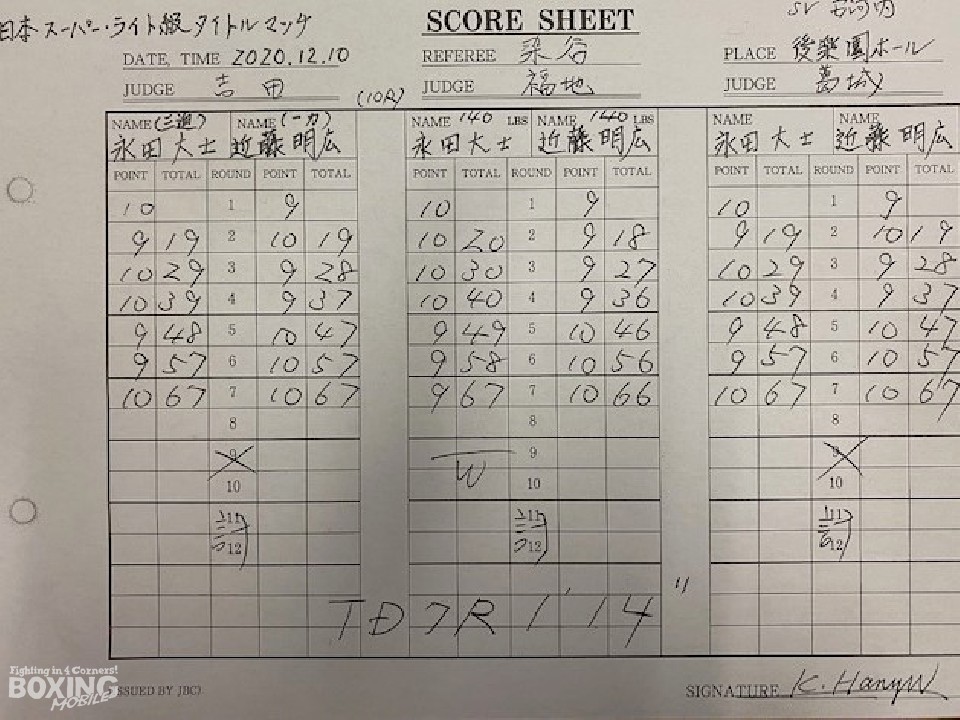 日本スーパー・ライト級タイトルマッチ
SCORE SHEET
DATE, TIME 2020.12.10 REFEREE 染谷 PLACE 後楽園ホール
JUDGE 吉田 (10R) JUDGE 福地 JUDGE 葛城
NAME (三迫) NAME (一力) NAME 140 LBS NAME 140 LBS NAME NAME
永田大士 近藤明広 永田大士 近藤明広 永田大士 近藤明広
POINT TOTAL ROUND POINT TOTAL POINT TOTAL ROUND POINT TOTAL POINT TOTAL ROUND POINT TOTAL
10 1 9 10 1 9 10 1 9
9 19 2 10 19 10 20 2 9 18 9 19 2 10 19
10 29 3 9 28 10 30 3 9 27 10 29 3 9 28
10 39 4 9 37 10 40 4 9 36 10 39 4 9 37
9 48 5 10 47 9 49 5 10 46 9 48 5 10 47
9 57 6 10 57 9 58 6 10 56 9 57 6 10 57
10 67 7 10 67 9 67 7 10 66 10 67 7 10 67
8 8 8
9 9 9
10 W 10 10
11 11 11
12 12 12
TD 7R 1'14"
Fighting in 4 Corners!
BOXING
MOBILE
ISSUED BY JBC) SIGNATURE